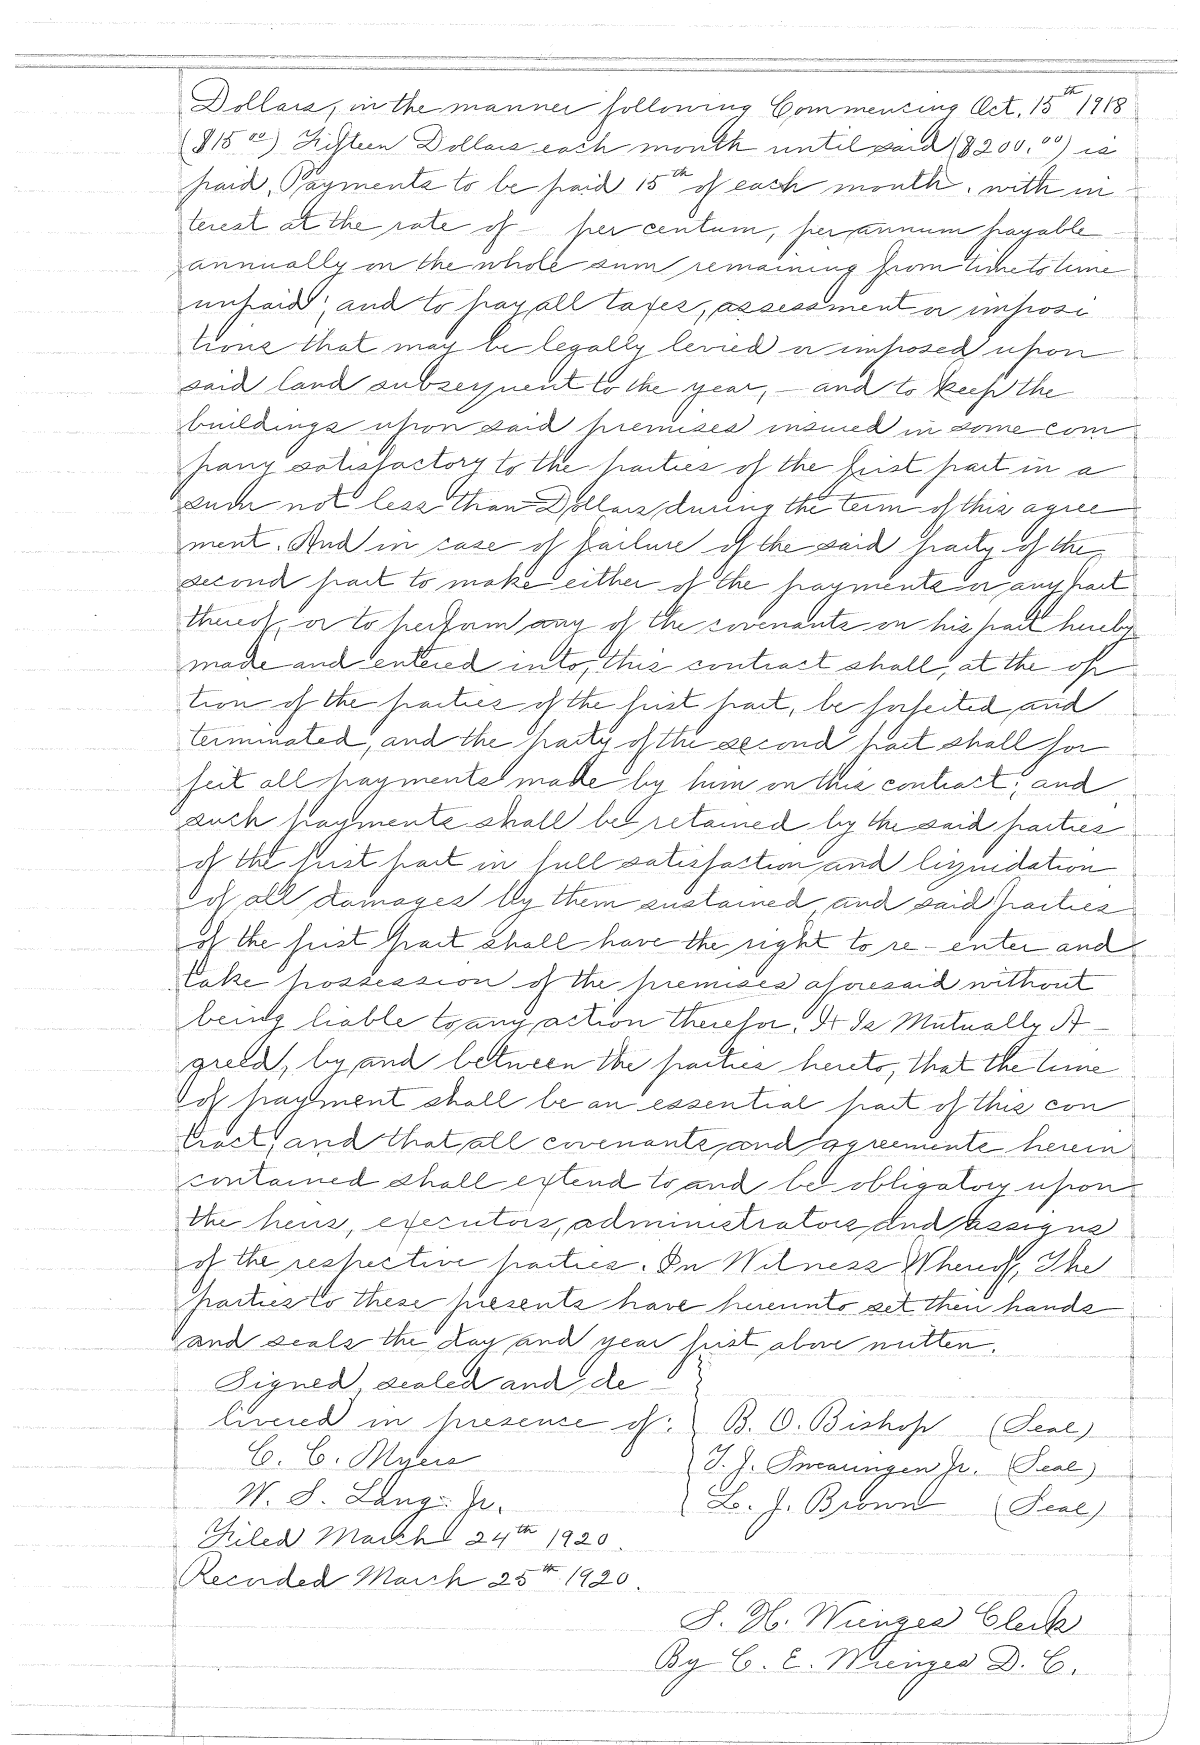 Dollars, in the manner following Commencing Oct. 15th 1918
($15.00) Fifteen Dollars each month until said ($200.00) is
paid. Payments to be paid 15th of each month. with in
terest at the rate of - per centum, per annum payable
annually on the whole sum remaining from time to time
unpaid; and to pay all taxes, assessment or imposi
tions that may be legally levied or imposed upon
said land subsequent to the year, - and to keep the
buildings upon said premises insured in some com
pany satisfactory to the parties of the first part in a
sum not less than - Dollars during the term of this agree
ment. And in case of failure of the said party of the
second part to make either of the payments or any part
thereof, or to perform any of the covenants on his part hereby
made and entered into, this contract shall, at the op
tion of the parties of the first part, be forfeited and
terminated, and the party of the second part shall for
feit all payments made by him on this contract; and
such payments shall be retained by the said parties
of the first part in full satisfaction and liquidation
of all damages by them sustained, and said parties
of the first part shall have the right to re-enter and
take possession of the premises aforesaid without
being liable to any action therefor. It Is Mutually A-
greed, by and between the parties hereto, that the time
of payment shall be an essential part of this con
tract; and that all covenants and agreements herein
contained shall extend to and be obligatory upon
the heirs, executors, administrators and assigns
of the respective parties. In Witness Whereof, The
parties to these presents have hereunto set their hands
and seals the day and year first above written.
Signed, sealed and de-
livered in presence of: B. O. Bishop (Seal)
C. C. Myers T. J. Swearingen Jr. (Seal)
W. S. Lang Jr. L. J. Brown (Seal)
Filed March 24th 1920.
Recorded March 25th 1920.
S. H. Wienges Clerk
By C. E. Wienges D. C.